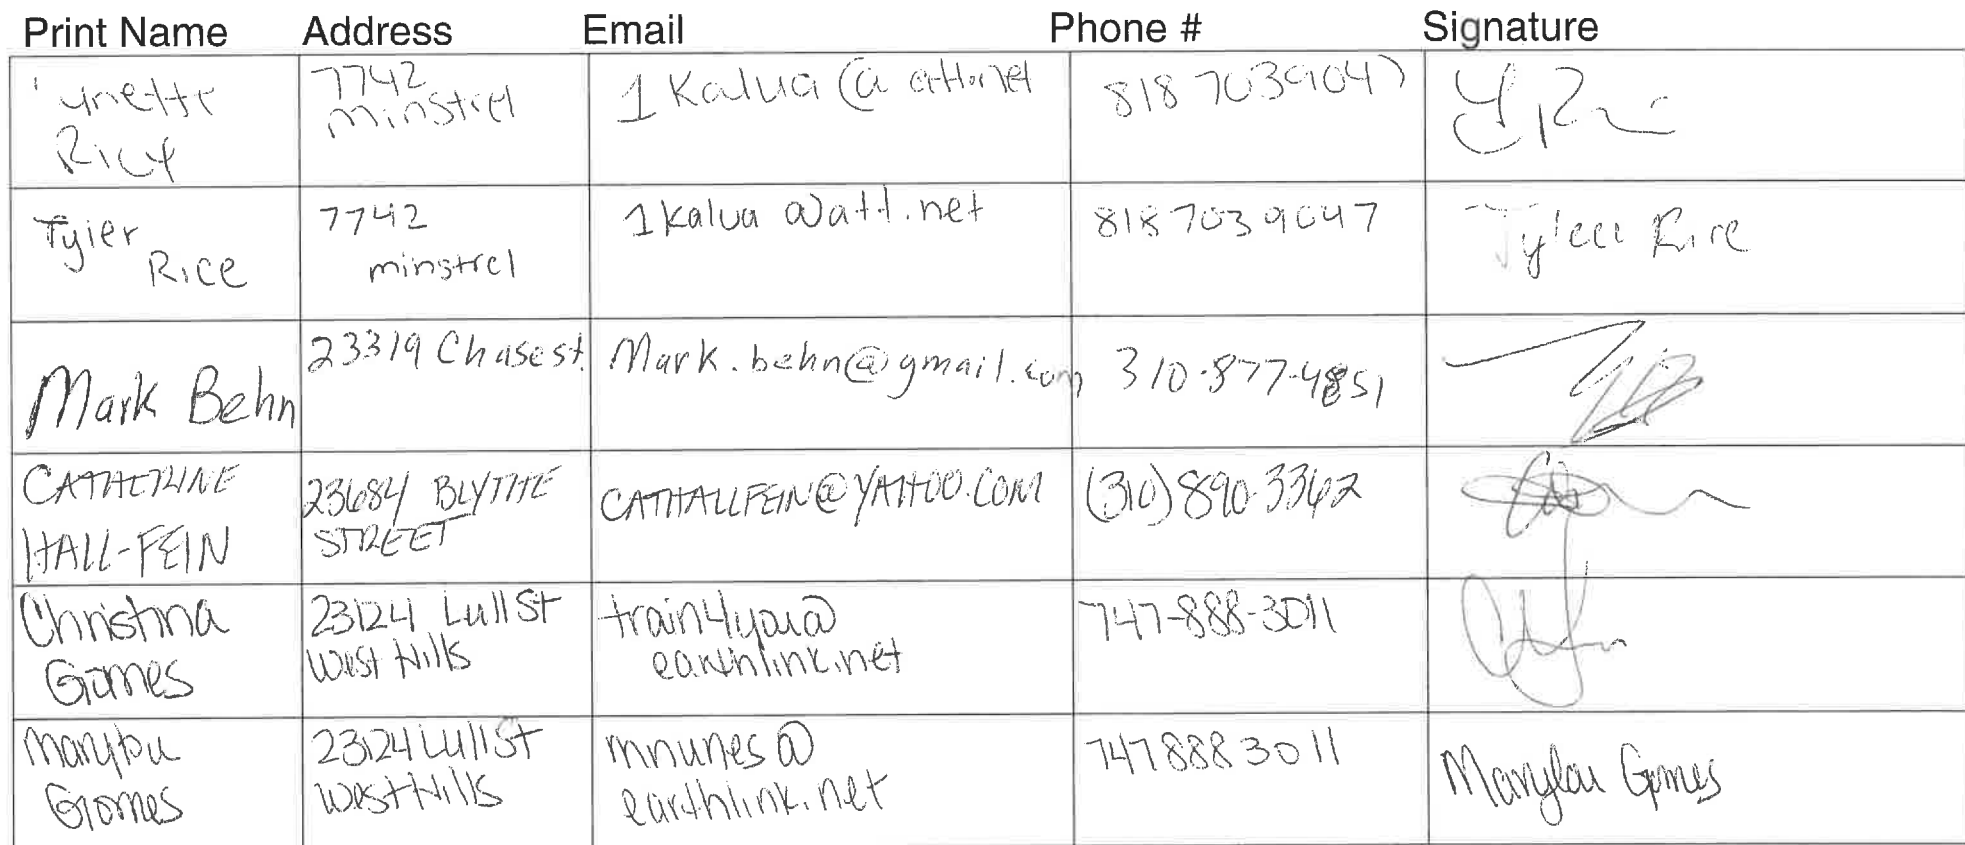 Print Name Address Email Phone # Signature
ynette
Rice
7742
minstrel
1Kalua@att.net
8187039047
Tyler
Rice
7742
minstrel
1kalua@att.net
8187039047
Tyler Rice
Mark Behn
23319 Chase st.
Mark.behn@gmail.com
310-877-4851
CATHERINE
HALL-FEIN
23684 BLYTHE
STREET
CATHALLFEIN@YAHOO.COM
(310) 890-3362
Christina
Gomes
23124 Lull St
West Hills
train4you@
earthlink.net
747-888-3011
Marylou
Gomes
23124 Lull St
West Hills
mnunes@
earthlink.net
747 888 3011
Marylou Gomes